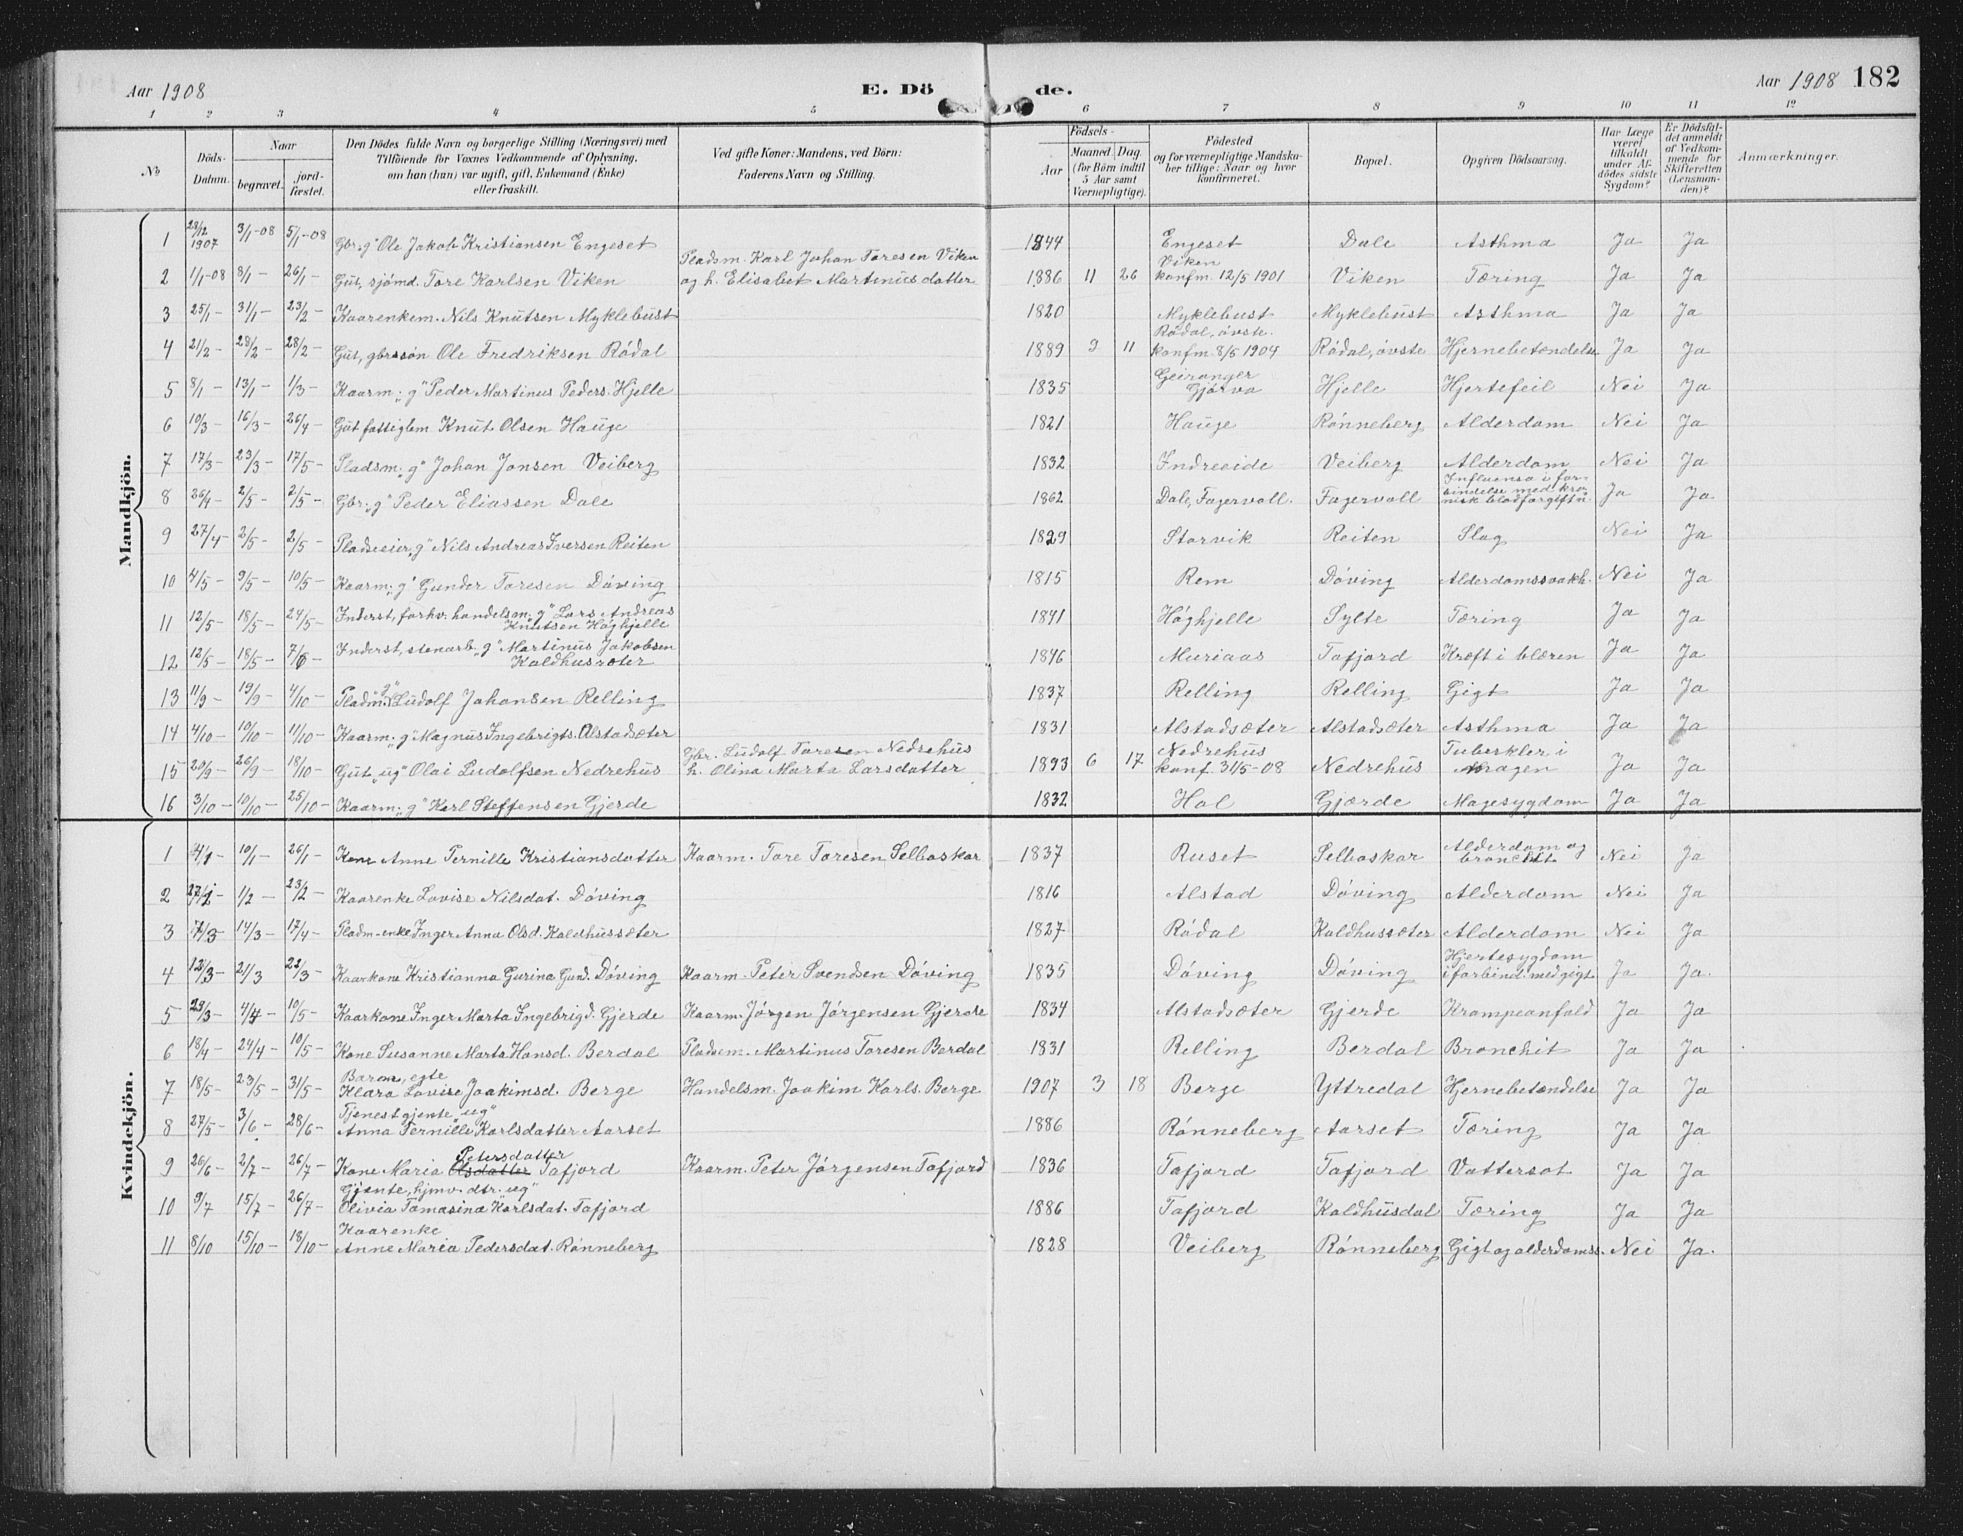 Aar 1908 E. Döde. Aar 1908 182
1 2 3 4 5 6 7 8 9 10 11 12
No Döds-Datum. Naar begravet. jord-fæstet. Den Dödes fulde Navn og borgerlige Stilling (Næringsvei) med Tilföiende for Voxnes Vedkommende af Oplysning, om han (hun) var ugift, gift, Enkemand (Enke) eller fraskilt. Ved gifte Koner: Mandens, ved Börn: Faderens Navn og Stilling. Födsels- Aar Maaned. Dag. (for Börn indtil 5 Aar samt Værnepligtige). Födested og for værnepligtige Mandskaber tillige: Naar og hvor konfirmeret. Bopæl. Opgiven Dödsaarsag. Har Læge været tilkaldt under Afdödes sidste Sygdom? Er Dödsfaldet anmeldt af Vedkommende for Skifteretten (Lensmanden)? Anmærkninger.
Mandkjön.
1 28/12 1907 3/1-08 5/1-08 Gbr. „g" Ole Jakob Kristiansen Engeset 1844 Engeset Dale Asthma Ja Ja
2 1/1-08 8/1- 26/1- Gut, sjömd. Tore Karlsen Viken Pladsm. Karl Johan Toresen Viken og h. Elisabet Martinusdatter 1886 11 26 Viken konfm. 12/5 1901 Viken Tæring Ja Ja
3 25/1- 31/1- 23/2- Kaarenkem. Nils Knutsen Myklebust 1820 Myklebust Myklebust Asthma Ja Ja
4 21/2- 28/2- 28/2- Gut, gbrssön Ole Fredriksen Rödal 1889 9 11 Rödal, övste. konfm. 8/5 1904 Rödal, övste Hjernebetændelse Ja Ja
5 8/1- 13/1- 1/3- Kaarm. „g" Peder Martinus Peders. Hjelle 1835 Geiranger Gjörva Hjelle Hjertefeil Nei Ja
6 10/3- 16/3- 26/4- Gut fattiglem Knut Olsen Hauge 1821 Hauge Rönneberg Alderdom Nei Ja
7 17/3- 23/3- 17/5- Pladsm. „g" Johan Jonsen Veiberg 1832 Indreeide Veiberg Alderdom Nei Ja
8 26/4- 2/5- 2/5- Gbr. „g" Peder Eliassen Dale 1862 Dale, Fagervoll. Fagervoll Influensa i forbindelse med kronisk blodforgiftn. Ja Ja
9 27/4- 2/5- 2/5- Pladseeier „g" Nils Andreas Iversen Reiten 1829 Storvik Reiten Slag Nei Ja
10 4/5- 9/5- 10/5- Kaarm. „g" Gunder Toresen Döving 1815 Rem Döving Alderdomssvakh. Nei Ja
11 12/5- 18/5- 24/5- Inderst, forhv. handelsm. „g" Lars Andreas Knutsen Höghjelle 1841 Höghjelle Sylte Tæring Ja Ja
12 12/5- 18/5- 7/6- Inderst, stenarb. „g" Martinus Jakobsen Kaldhussæter 1846 Muriaas Tafjord Kræft i blæren Ja Ja
13 11/9- 19/9- 4/10- Pladm. „g" Ludolf Johansen Relling 1837 Relling Relling Gigt Ja Ja
14 4/10- 10/10- 11/10- Kaarm. „g" Magnus Ingebrigts. Alstadsæter 1831 Alstadsæter Alstadsæter Asthma Ja Ja
15 20/9- 26/9- 18/10- Gut „ug" Olai Ludolfsen Nedrehus Gbr. Ludolf Toresen Nedrehus h. Olina Marta Larsdatter 1893 6 17 Nedrehus konf. 31/5-08 Nedrehus Tuberkler i maven Ja Ja
16 3/10- 10/10- 25/10- Kaarm. „g" Karl Steffensen Gjerde 1832 Hol Gjærde Magesygdom Ja Ja
Kvindekjön.
1 4/1- 10/1- 26/1- Kone Anne Pernille Kristiansdatter Kaarm. Tore Toresen Selboskar 1837 Ruset Selboskar Alderdom og bronchit Nei Ja
2 27/1- 1/2- 23/2- Kaarenke Lovise Nilsdat. Döving 1816 Alstad Döving Alderdom Nei Ja
3 7/3- 14/3- 17/4- Pladm-enke Inger Anna Olsd. Kaldhussæter 1827 Rödal Kaldhussæter Alderdom Nei Ja
4 12/3- 21/3 22/3- Kaarkone Kristianna Gurina Gund. Döving Kaarm. Peter Svendsen Döving 1835 Döving Döving Hjertesygdom i forbind. med gigt Ja Ja.
5 29/3- 4/4- 10/5- Kaarkone Inger Marta Ingebrigd. Gjerde Kaarm. Jörgen Jörgensen Gjerde 1834 Alstadsæter Gjerde Krampeanfald Ja Ja
6 18/4- 24/4- 10/5- Kone Susanne Marta Hansd. Berdal Pladsem. Martinus Toresen Berdal 1831 Relling Berdal Bronchit Ja Ja
7 18/5- 23/5- 31/5- Barn, egte Klara Lovise Joakimsd. Berge Handelsm. Joakim Karls. Berge 1907 3 18 Berge Yttredal Hjernebetændelse Ja Ja
8 27/5- 3/6- 28/6- Tjenestgjente „ug" Anna Pernille Karlsdatter Aarset 1886 Rönneberg Aarset Tæring Ja Ja
9 26/6- 2/7- 26/7- Kone Maria Olsdatter Petersdatter Tafjord Kaarm. Peter Jörgensen Tafjord 1836 Tafjord Tafjord Vattersot Ja Ja
10 9/7 15/7- 26/7- Gjente, hjmv. dtr. „ug" Olivia Tomasina Karlsdat. Tafjord 1886 Tafjord Kaldhusdal Tæring Ja Ja
11 8/10 15/10- 18/10- Kaarenke Anne Maria Pedersdat. Rönneberg 1828 Veiberg Rönneberg Gigt og alderdomss. Nei Ja.